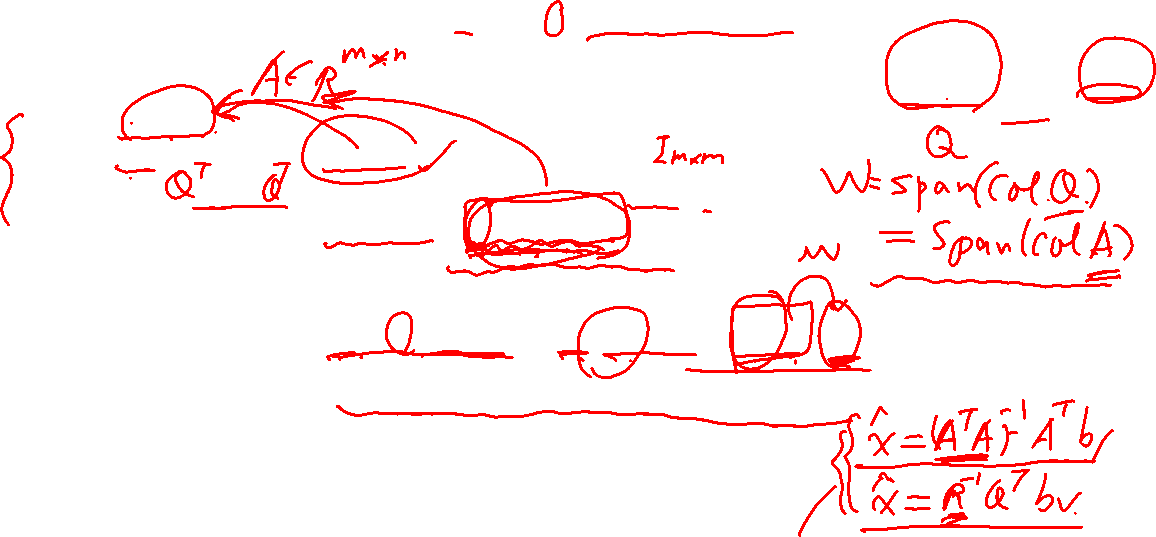 0
A ∈ R^{m×n}
Q^T Q^T
I_{m×m}
Q
W = span(col.Q)
= span(col A)
W
x̂ = (A^T A)^{-1} A^T b
x̂ = R^{-1} Q^T b